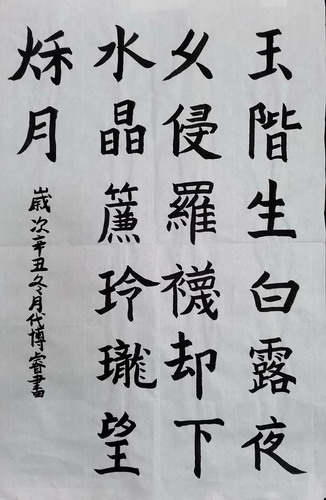 玉階生白露夜
久侵羅襪却下
水晶簾玲瓏望
秌月
歲次辛丑冬月代博睿書